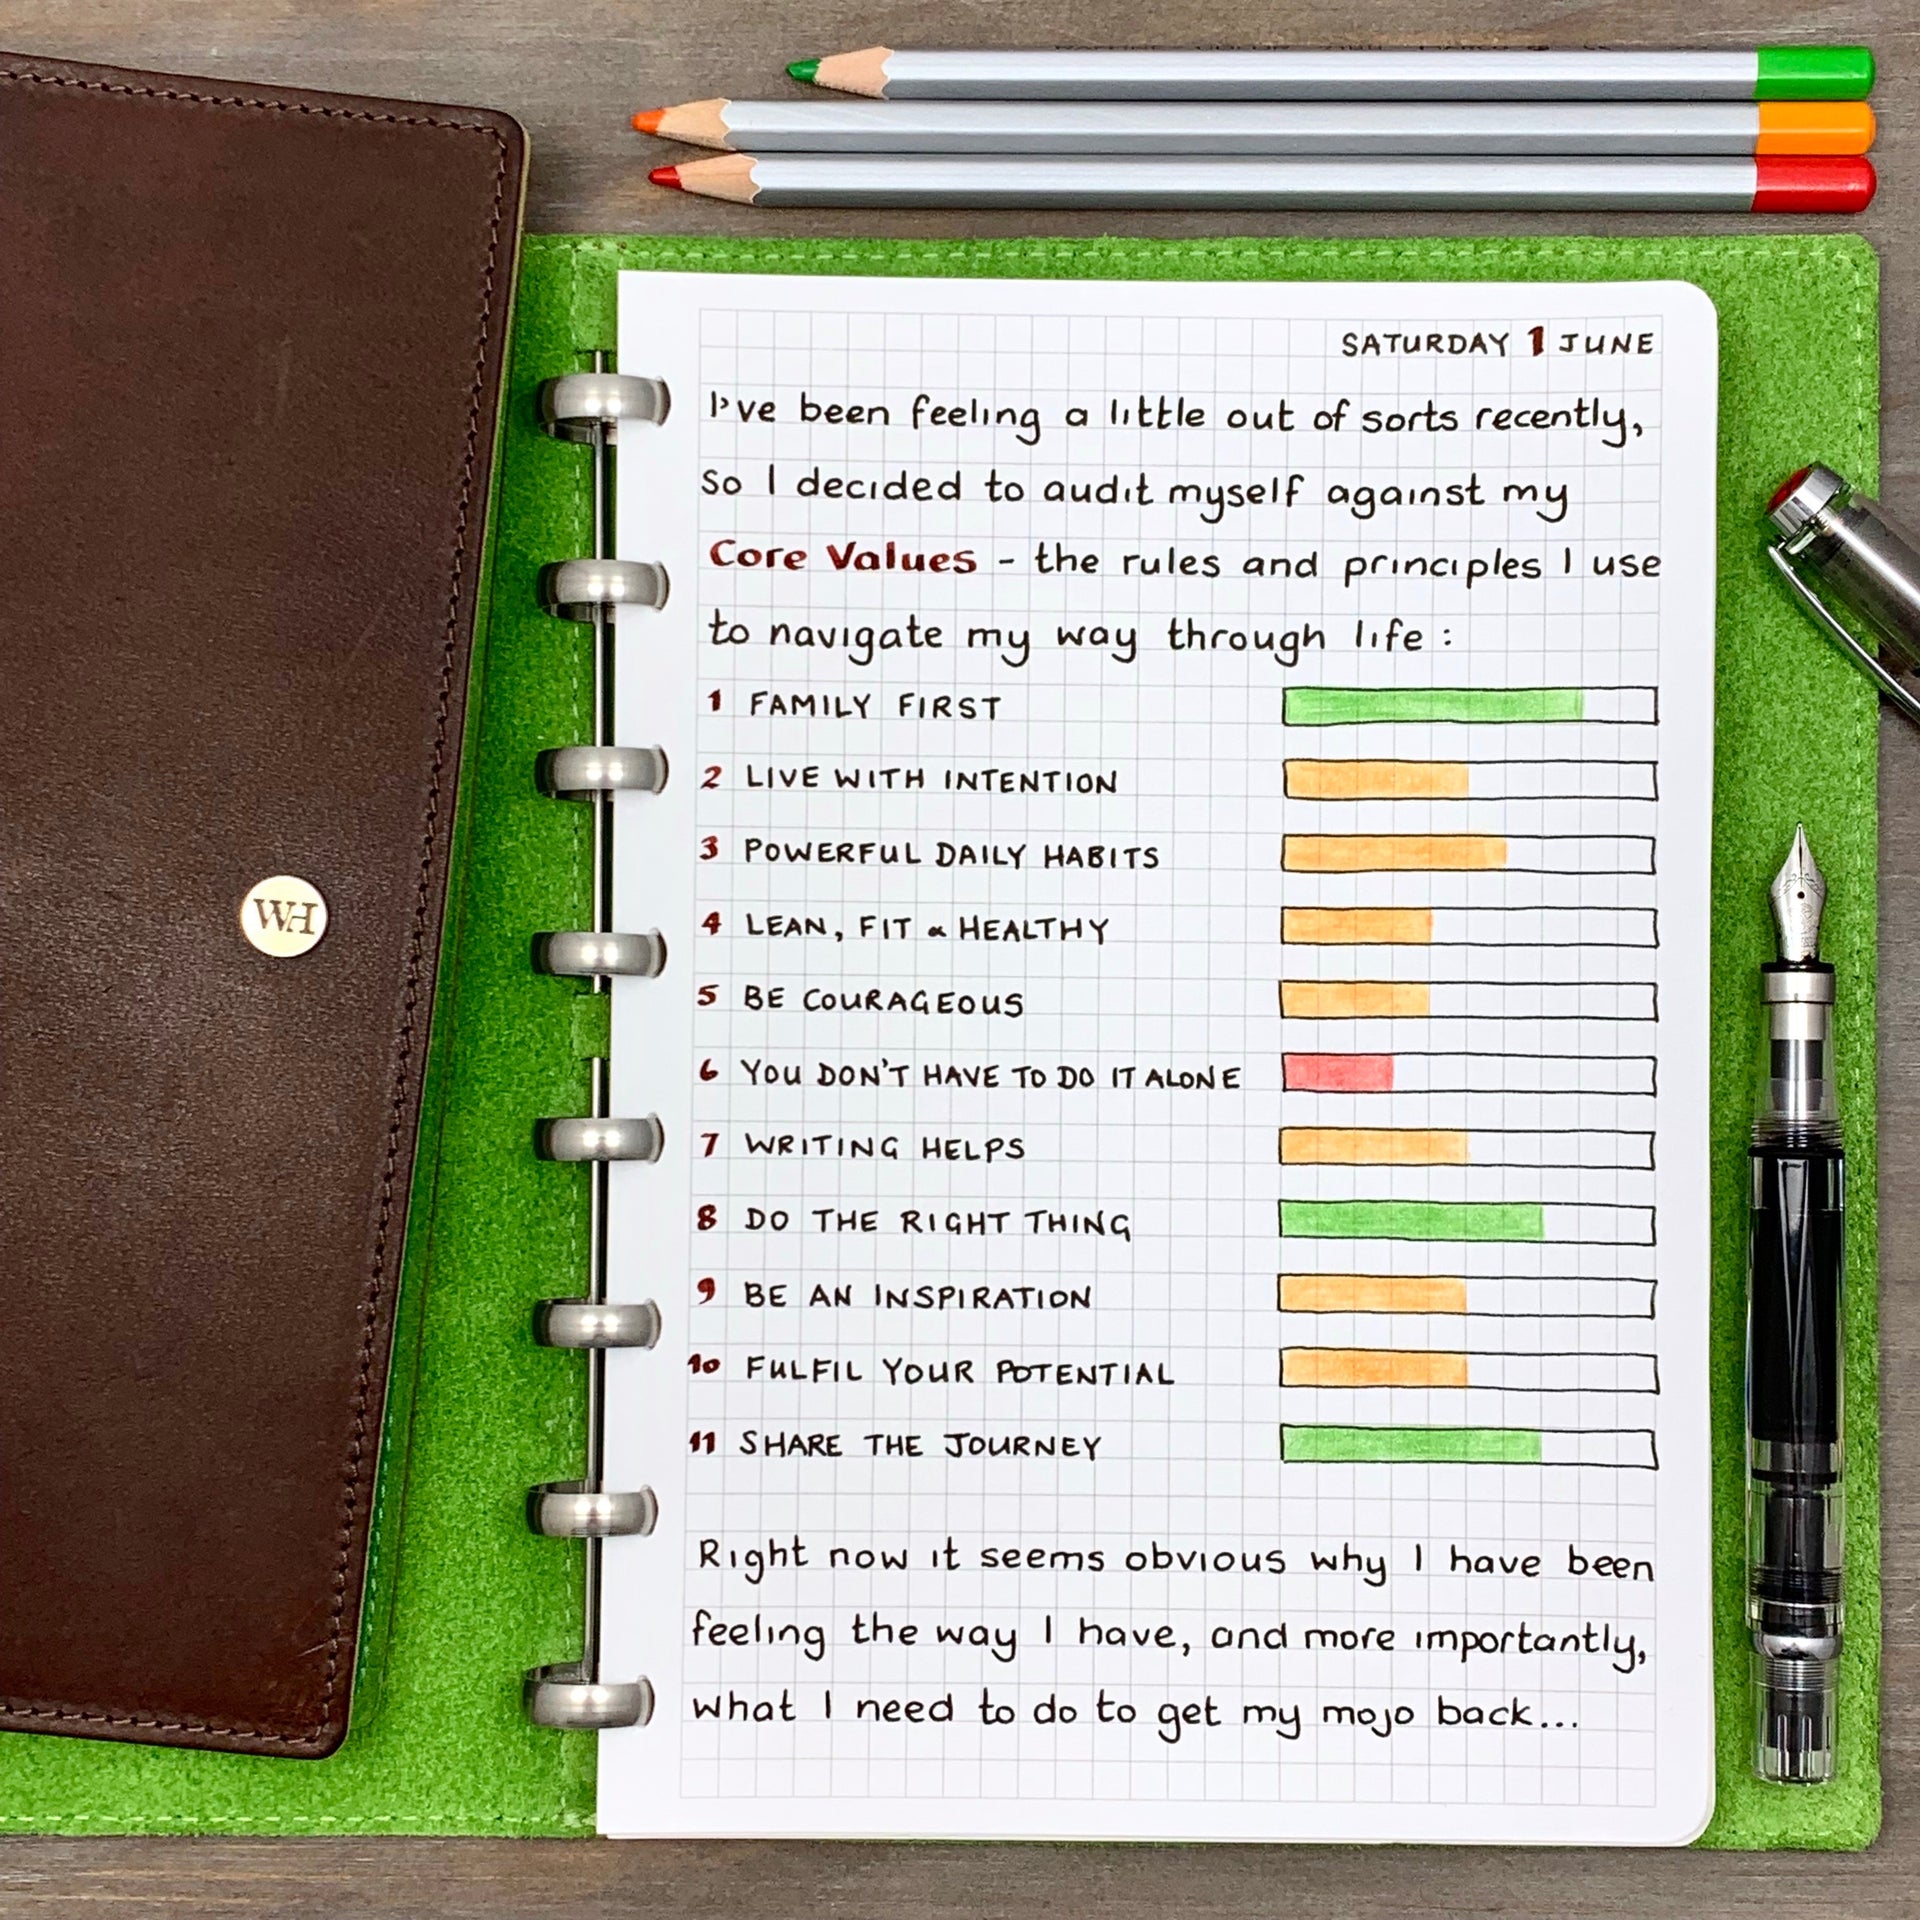 SATURDAY 1 JUNE
I've been feeling a little out of sorts recently,
so I decided to audit myself against my
Core Values - the rules and principles I use
to navigate my way through life :
1 FAMILY FIRST
2 LIVE WITH INTENTION
3 POWERFUL DAILY HABITS
4 LEAN, FIT & HEALTHY
5 BE COURAGEOUS
6 YOU DON'T HAVE TO DO IT ALONE
7 WRITING HELPS
8 DO THE RIGHT THING
9 BE AN INSPIRATION
10 FULFIL YOUR POTENTIAL
11 SHARE THE JOURNEY
Right now it seems obvious why I have been
feeling the way I have, and more importantly,
what I need to do to get my mojo back...
WH